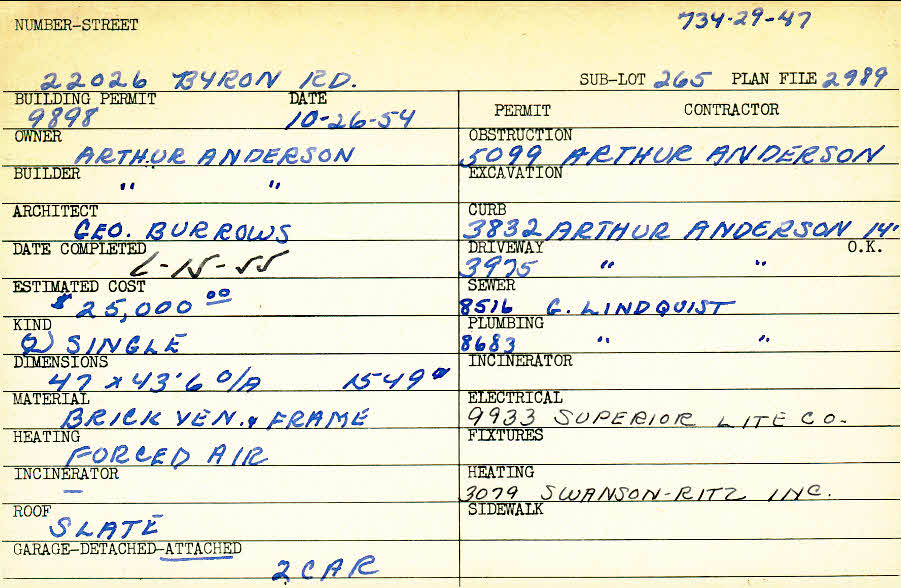 NUMBER-STREET 734-29-47
22026 BYRON RD. SUB-LOT 265 PLAN FILE 2989
BUILDING PERMIT DATE
9898 10-26-54
PERMIT CONTRACTOR
OWNER
ARTHUR ANDERSON
OBSTRUCTION
5099 ARTHUR ANDERSON
BUILDER
" "
EXCAVATION
ARCHITECT
GEO. BURROWS
CURB
3832 ARTHUR ANDERSON 14'
DATE COMPLETED
6-15-55
DRIVEWAY O.K.
3975 " "
ESTIMATED COST
$ 25,000 00
SEWER
8516 G. LINDQUIST
KIND
(2) SINGLE
PLUMBING
8683 " "
DIMENSIONS
47 x 43'6 O/A 1549
INCINERATOR
MATERIAL
BRICK VEN. & FRAME
ELECTRICAL
9933 SUPERIOR LITE CO.
HEATING
FORCED AIR
FIXTURES
INCINERATOR
-
HEATING
3079 SWANSON-RITZ INC.
ROOF
SLATE
SIDEWALK
GARAGE-DETACHED-ATTACHED
2 CAR